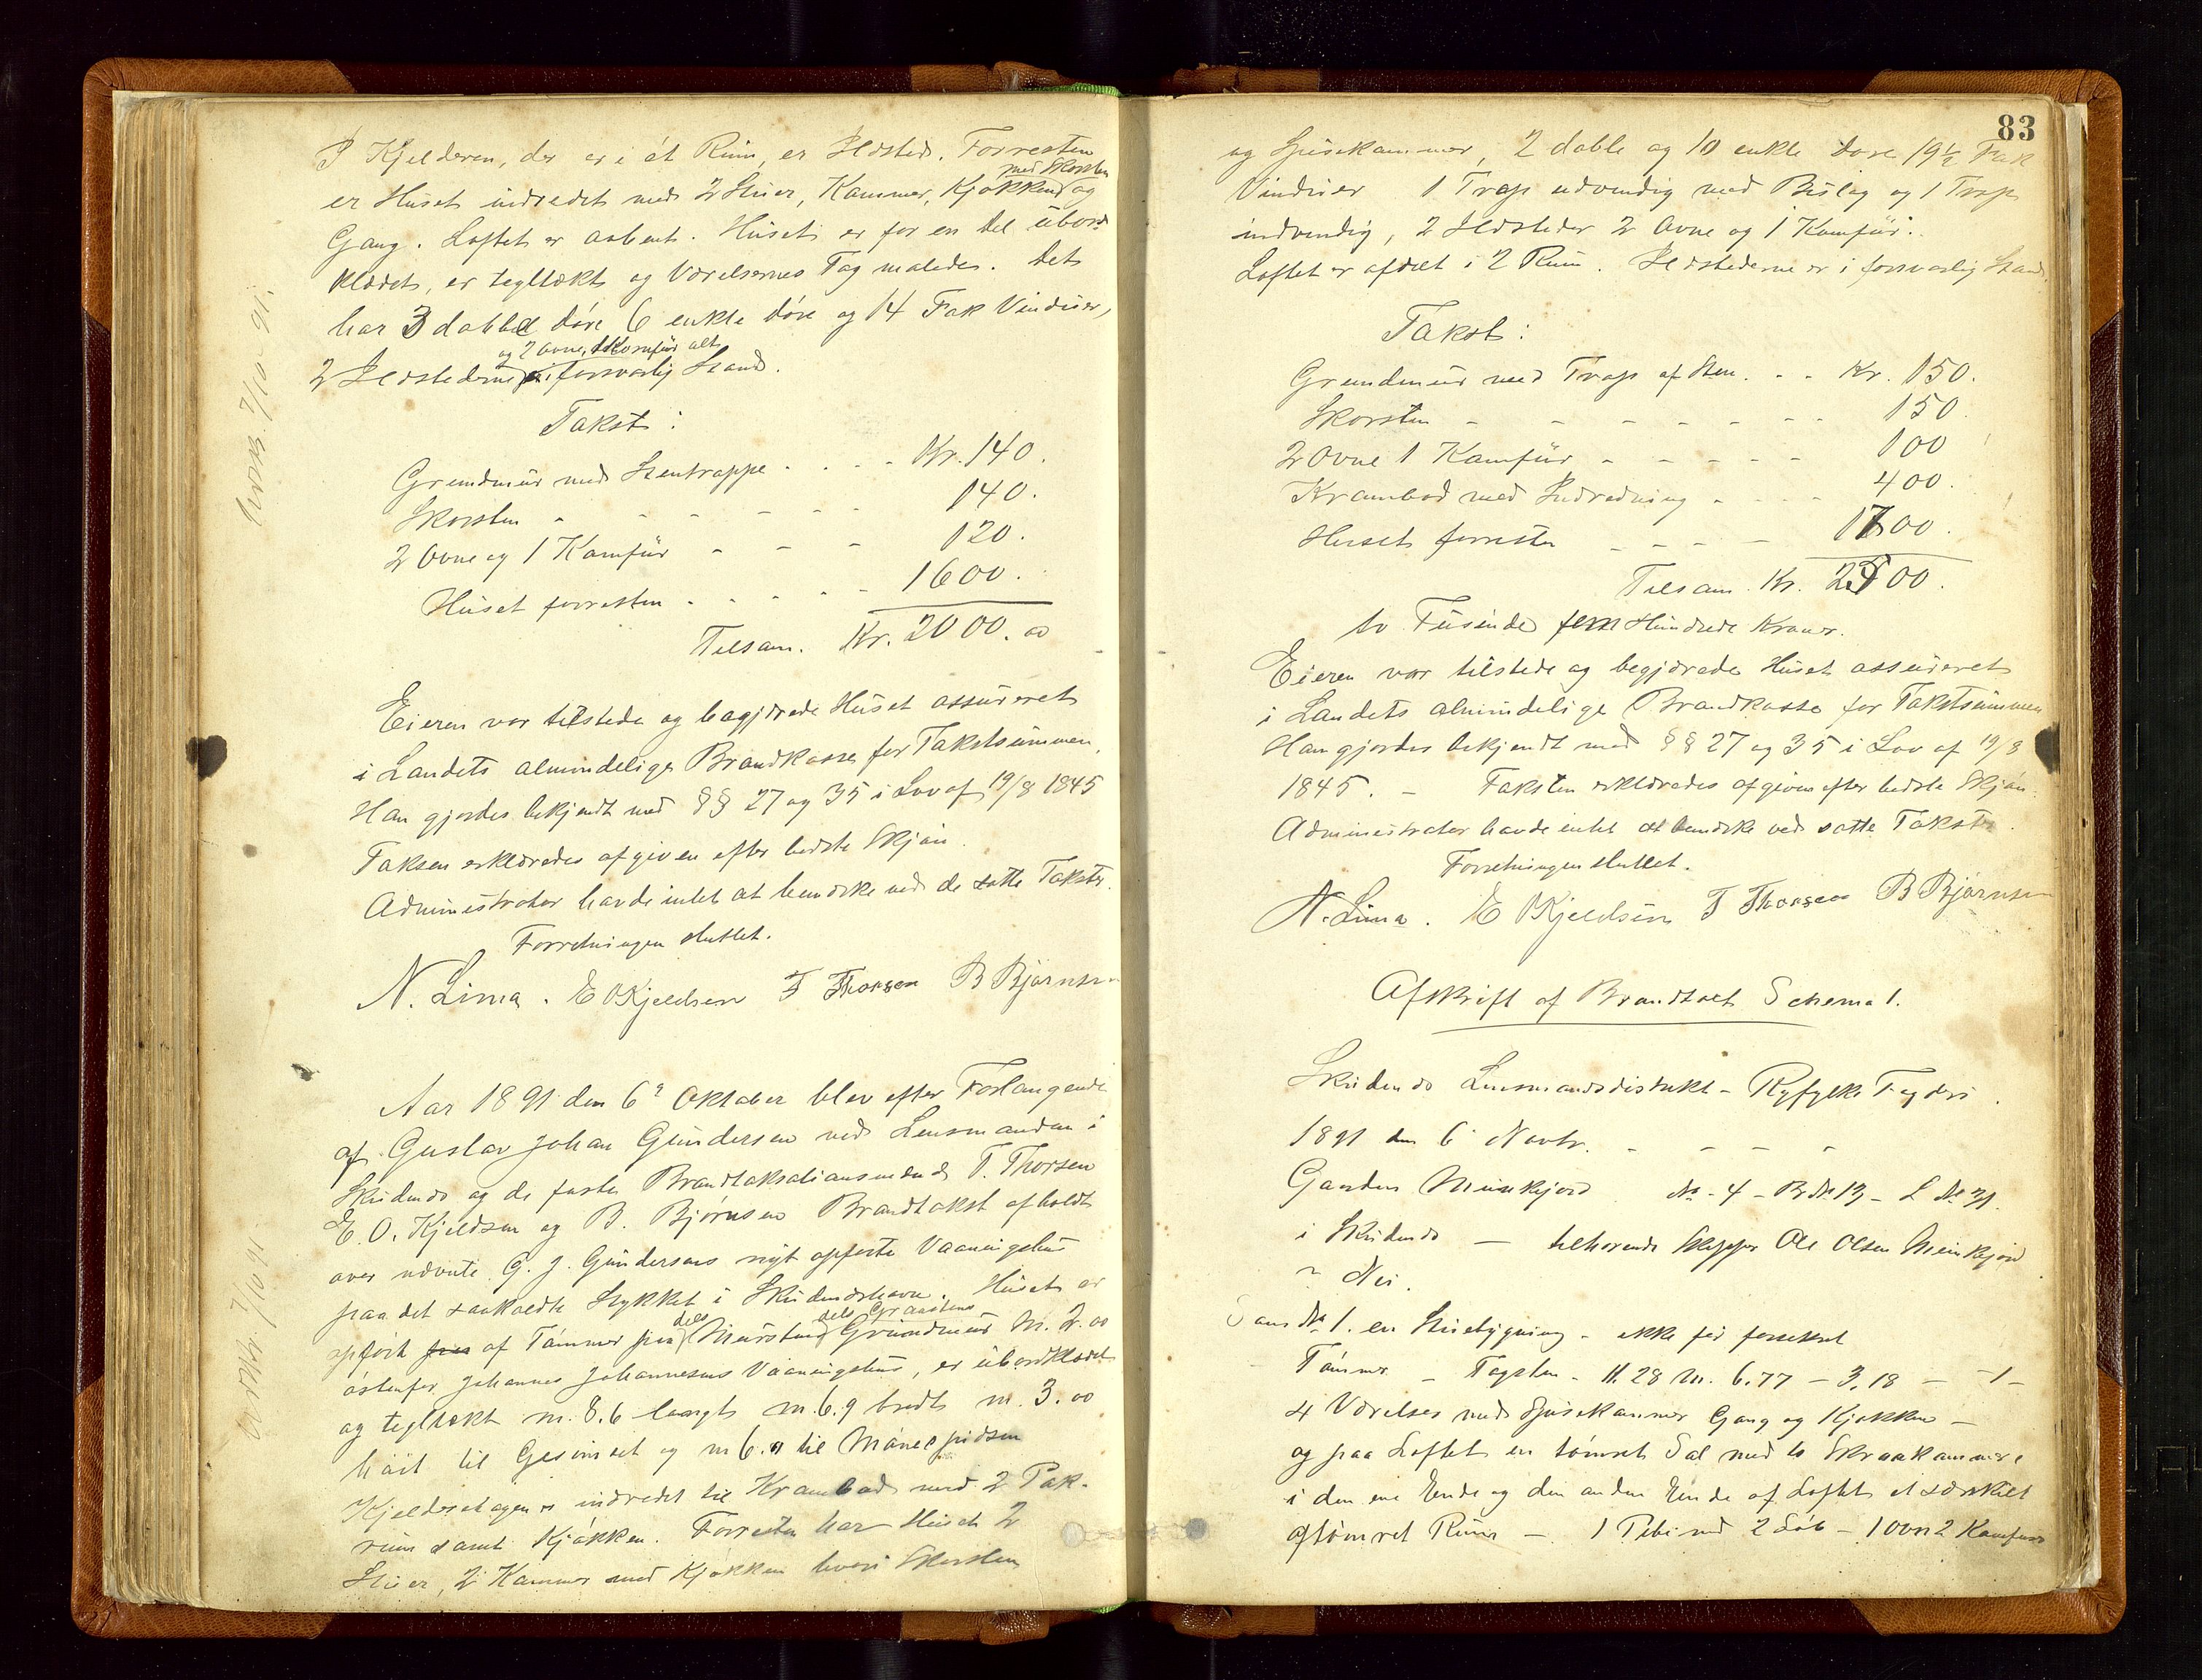 I Kjelderen, der er i ét Rum, er Ildsted. Forresten
er Huset indredet med 2 Stuer, Kammer, Kjøkken med Skorsten og
Gang. Loftet er aabent. Huset er for en del ubord-
klædet, er tegltækt og Værelsernes Tag malede. Det
har 3 doble Døre 6 enkle Døre og 14 Fak Vinduer,
2 Ildstederne og 2 Ovne, 1 Komfür alt i forsvarlig Stand.
Takst:
Grundmur med Stentrappe . . . . Kr. 140.
Skorsten - - - - - - 140.
2 Ovne og 1 Kamfür - - - 120.
Huset forresten . . . . . 1600.
Tilsam. Kr. 2000.00
Eieren var tilstede og begjærede Huset assureret
i Landets almindelige Brandkasse for Takstsummen.
Han gjordes bekjendt med §§ 27 og 35 i Lov af 19/8 1845
Taksen erklæredes afgiven efter bedste Skjøn.
Administrator havde intet at bemærke ved de satte Takster.
Forretningen sluttet.
N. Lima. E O Kjeldsen T Thorsen B Bjørnsen
Aar 1891 den 6te Oktober blev efter Forlangende
af Gustav Johan Gundersen ved Lensmanden i
Skudenes og de faste Brandtaksationsmænd T. Thorsen
E. O. Kjeldsen og B. Bjørnsen Brandtakst afholdt
over nævnte G. J. Gundersens nyt opførte Vaaningshus
paa det saakaldte Stykket i Skudeneshavn. Huset er
opført af Tømmer paa dels Mursten dels Graastens Grundmur M. 2.00
østenfor Johannes Johannesens Vaaningshus, er ubordklædt
og tegltækt m. 8.6 langt m. 6.9 bredt m. 3.00
høit til Gesimset og m 6. til Mønespidsen
Kjelderetagen er indredet til Krambod med 2 Pak-
rum samt Kjøkken. Forresten har Huset 2
Stuer, 2 Kammer med Kjøkken hvori Skorsten
Avskr. 7/10 91.
Avskr. 7/10 91
83
og Spisekammer, 2 doble og 10 enkle Døre 19½ Fak
Vinduer 1 Trap udvendig med Bislag og 1 Trap
indvendig, 2 Ildsteder 2 Ovne og 1 Kamfür.
Loftet er afdelt i 2 Rum. Ildstederne er i forsvarlig Stand.
Takst:
Grundmur med Trap af Sten. . . Kr. 150.
Skorsten - - - - - - - 150.
2 Ovne 1 Kamfür - - - - - 100
Krambod med Indredning - - - - 400.
Huset forresten - - - - 1700.
Tilsam. Kr. 2500.
to Tusinde fem Hundrede Kroner.
Eieren var tilstede og begjærede Huset assureret
i Landets almindelige Brandkasse for Takstsummen
Han gjordes bekjendt med §§ 27 og 35 i Lov af 19/8
1845. - Taksten erklæredes afgiven efter bedste Skjøn.
Administrator havde intet at bemærke ved satte Takster.
Forretningen sluttet.
N. Lima. E O Kjeldsen T Thorsen B Bjørnsen
Afskrift af Brandtakt Schema 1.
Skudenes Lensmandsdistrikt - Ryfylke Fogderi.
1891 den 6 Novbr. - - - -
Gaarden Meinkejord No - 4 - B No 13 - L No 31.
i Skudenes - tilhørende Skipper Ole Olsen Meinkejord
Nei.
No 1. en Stuebygning - ikke før forsikret
Tømmer - Tagsten - 11.28 M. 6.77 - 3.18 - -1-
4 Værelser med Spisekammer Gang og Kjøkken -
og paa Loftet en tømret Sal med to Skraakammere
i den ene Ende og den anden Ende af Loftet et særskilt
aftømret Rum - 1 Pibe med 2 Løb - 1 ovn 2 Kamfurer